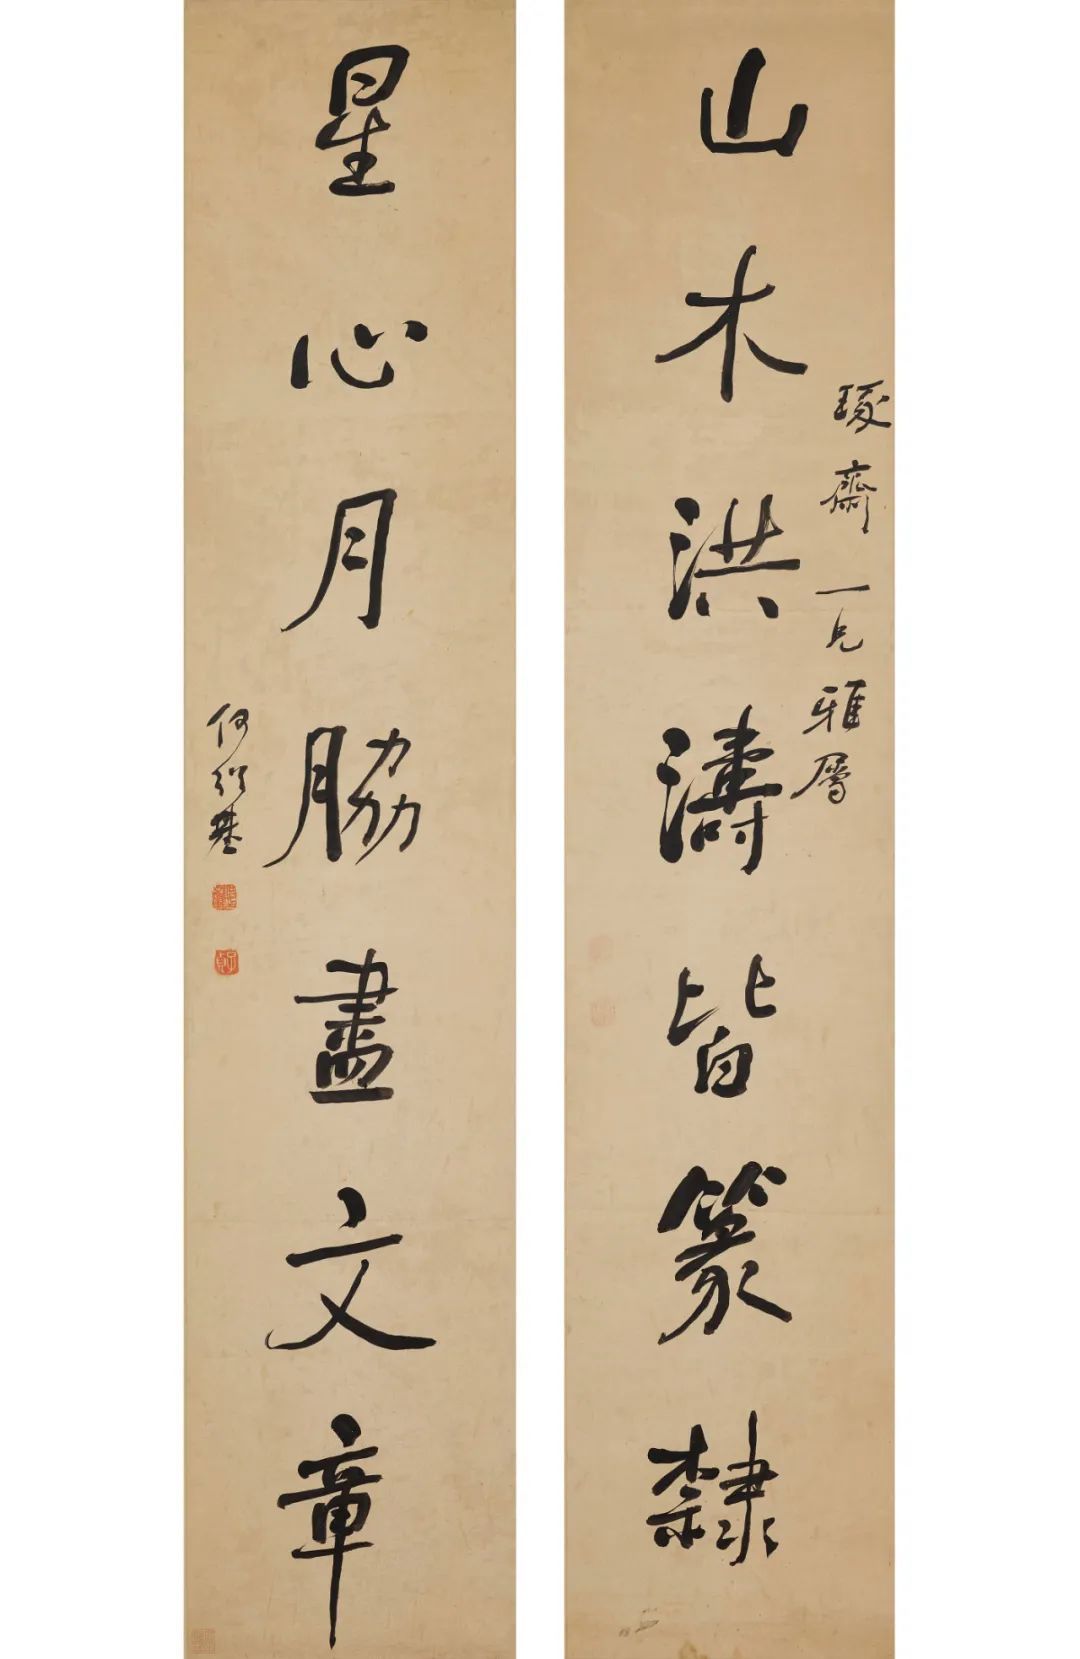 山木洪濤皆篆隸
琢齋一兄雅屬
星心月脇盡文章
何紹基